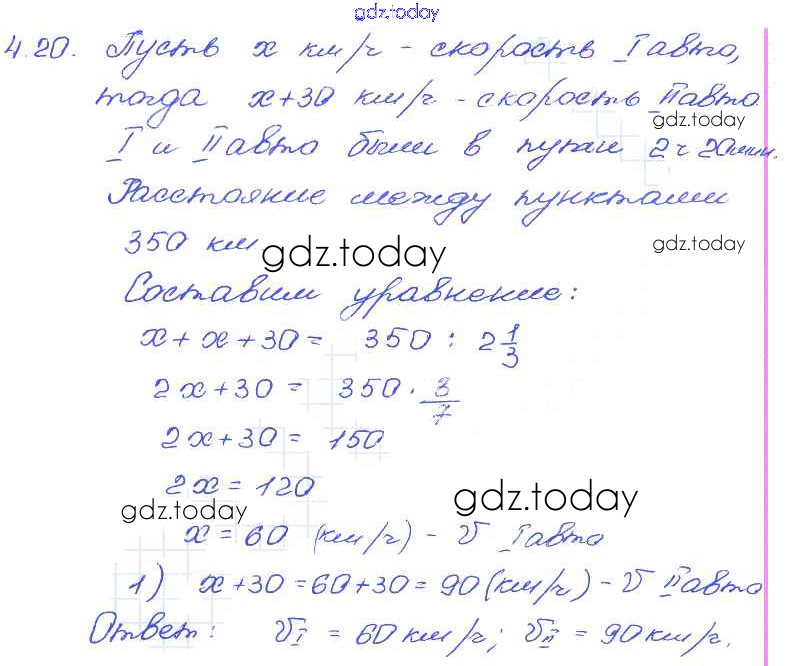 gdz.today
4.20. Пусть x км/ч - скорость I авто,
тогда x+30 км/ч - скорость II авто
gdz.today
I и II авто были в пути 2 ч 20 мин.
Расстояние между пунктами
350 км
gdz.today
gdz.today
Составим уравнение:
x + x + 30 = 350 : 2 1/3
2x + 30 = 350 · 3/7
2x + 30 = 150
2x = 120
gdz.today
gdz.today
x = 60 (км/ч) - v I авто
1) x + 30 = 60 + 30 = 90 (км/ч) - v II авто
Ответ: v I = 60 км/ч; v II = 90 км/ч.